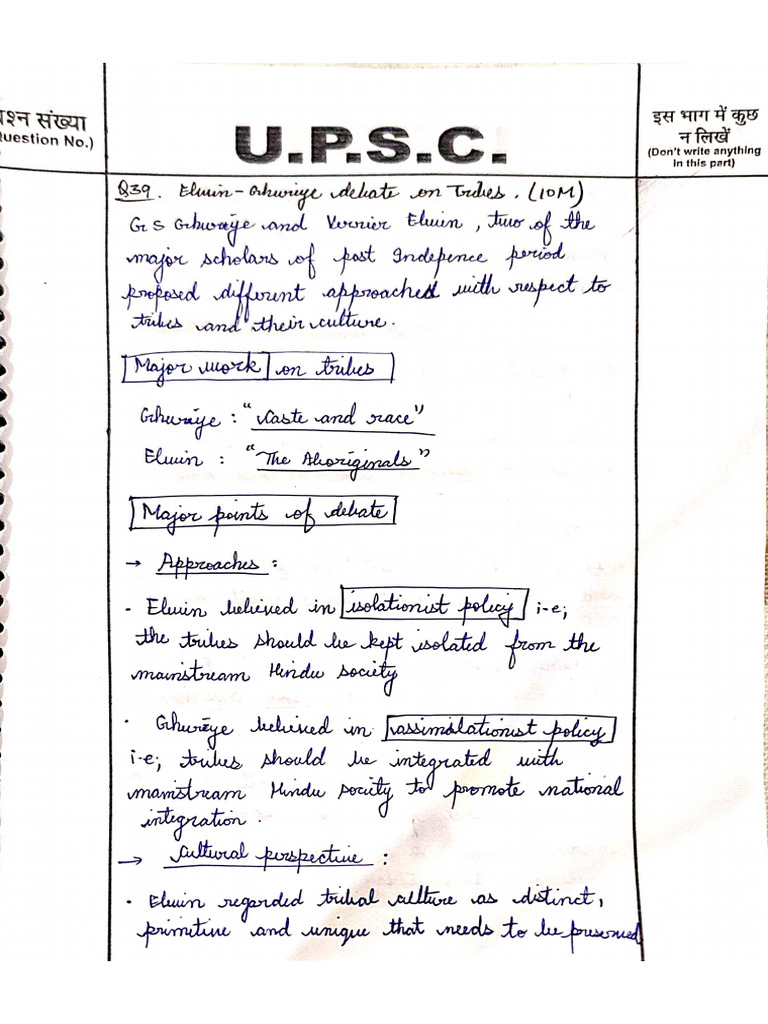 प्रश्न संख्या
(Question No.)
U.P.S.C.
इस भाग में कुछ
न लिखें
(Don't write anything
in this part)
Q39. Elwin-Ghurye debate on Tribes. (10M)
G S Ghurye and Verrier Elwin, two of the
major scholars of post Indepence period
proposed different approached with respect to
tribes and their culture.
Major work on tribes
Ghurye : "Caste and race"
Elwin : "The Aboriginals"
Major points of debate
→ Approaches :
· Elwin believed in isolationist policy i-e;
the tribes should be kept isolated from the
mainstream Hindu society
· Ghurye believed in assimilationist policy
i-e; tribes should be integrated with
mainstream Hindu society to promote national
integration.
→ Cultural perspective :
· Elwin regarded tribal culture as distinct,
primitive and unique that needs to be preserved